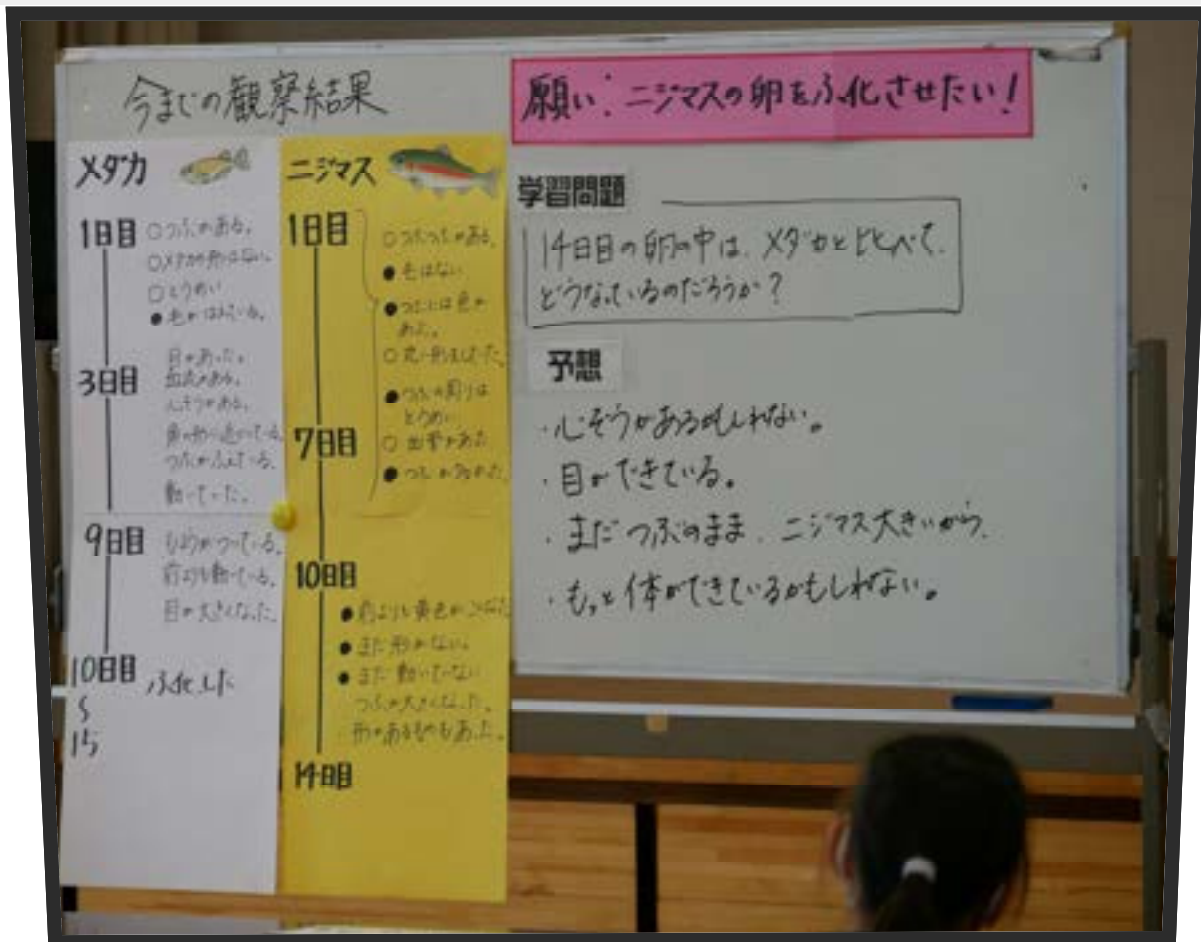 今までの観察結果
メダカ
1日目
○つぶがある。
○メダカの形はない。
○とうめい
●毛がはえている。
3日目
目があった。
血液がある。
心ぞうがある。
魚の形に近づいている。
つぶがふえている。
動いていた。
9日目
もようがついている。
前よりも動いている。
目が大きくなった。
10日目
ふ化した
15
ニジマス
1日目
○つぶつぶがある。
●毛はない
●つぶには色が
あった。
○丸い形をしていた。
●つぶの周りは
とうめい
7日目
○血管があった
●つぶが
10日目
●前よりも黄色がこくなった
●まだ形がない。
●まだ動いてない
つぶが大きくなった。
形があるものもあった。
14日目
願い:ニジマスの卵をふ化させたい!
学習問題
14日目の卵の中は、メダカと比べて、
どうなっているのだろうか?
予想
・心ぞうがあるかもしれない。
・目ができている。
・まだつぶのまま、ニジマス大きいから、
・もっと体ができているかもしれない。